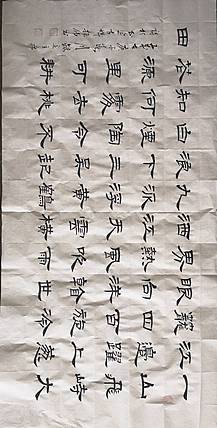 一山飛峙大
江邊躍上葱
蘢四百旋冷
眼向洋看世
界熱風吹雨
洒江天雲橫
九派浮黄鶴
浪下三吳起
白煙陶令不
知何處去桃
花源里可耕
田